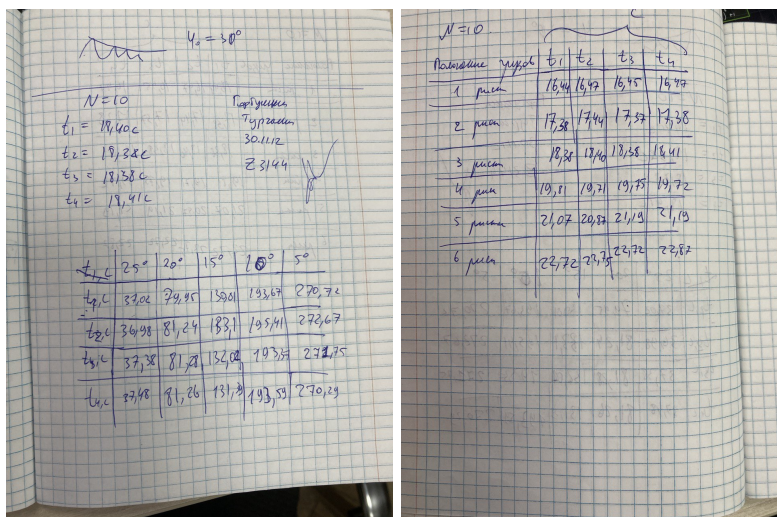 φ₀ = 30°
N = 10
t₁ = 18,40с
t₂ = 18,38с
t₃ = 18,38с
t₄ = 18,41с
30.11.12
Z3144
t₁,с 25° 20° 15° 10° 5°
t₁,с 37,02 79,95 193,67 270,72
t₂,с 36,98 81,24 133,1 195,41 272,67
t₃,с 37,38 81,28 132,02 271,75
t₄,с 37,48 81,26 131,9 193,59 270,29
с
N = 10
Положение грузов t₁ t₂ t₃ t₄
1 риски 16,44 16,47 16,45 16,47
2 риски 17,38 17,44 17,37 17,38
3 риски 18,38 18,40 18,38 18,41
4 риски 19,81 19,71 19,75 19,72
5 риски 21,07 20,87 21,19 21,19
6 риски 22,72 22,75 22,72 22,87